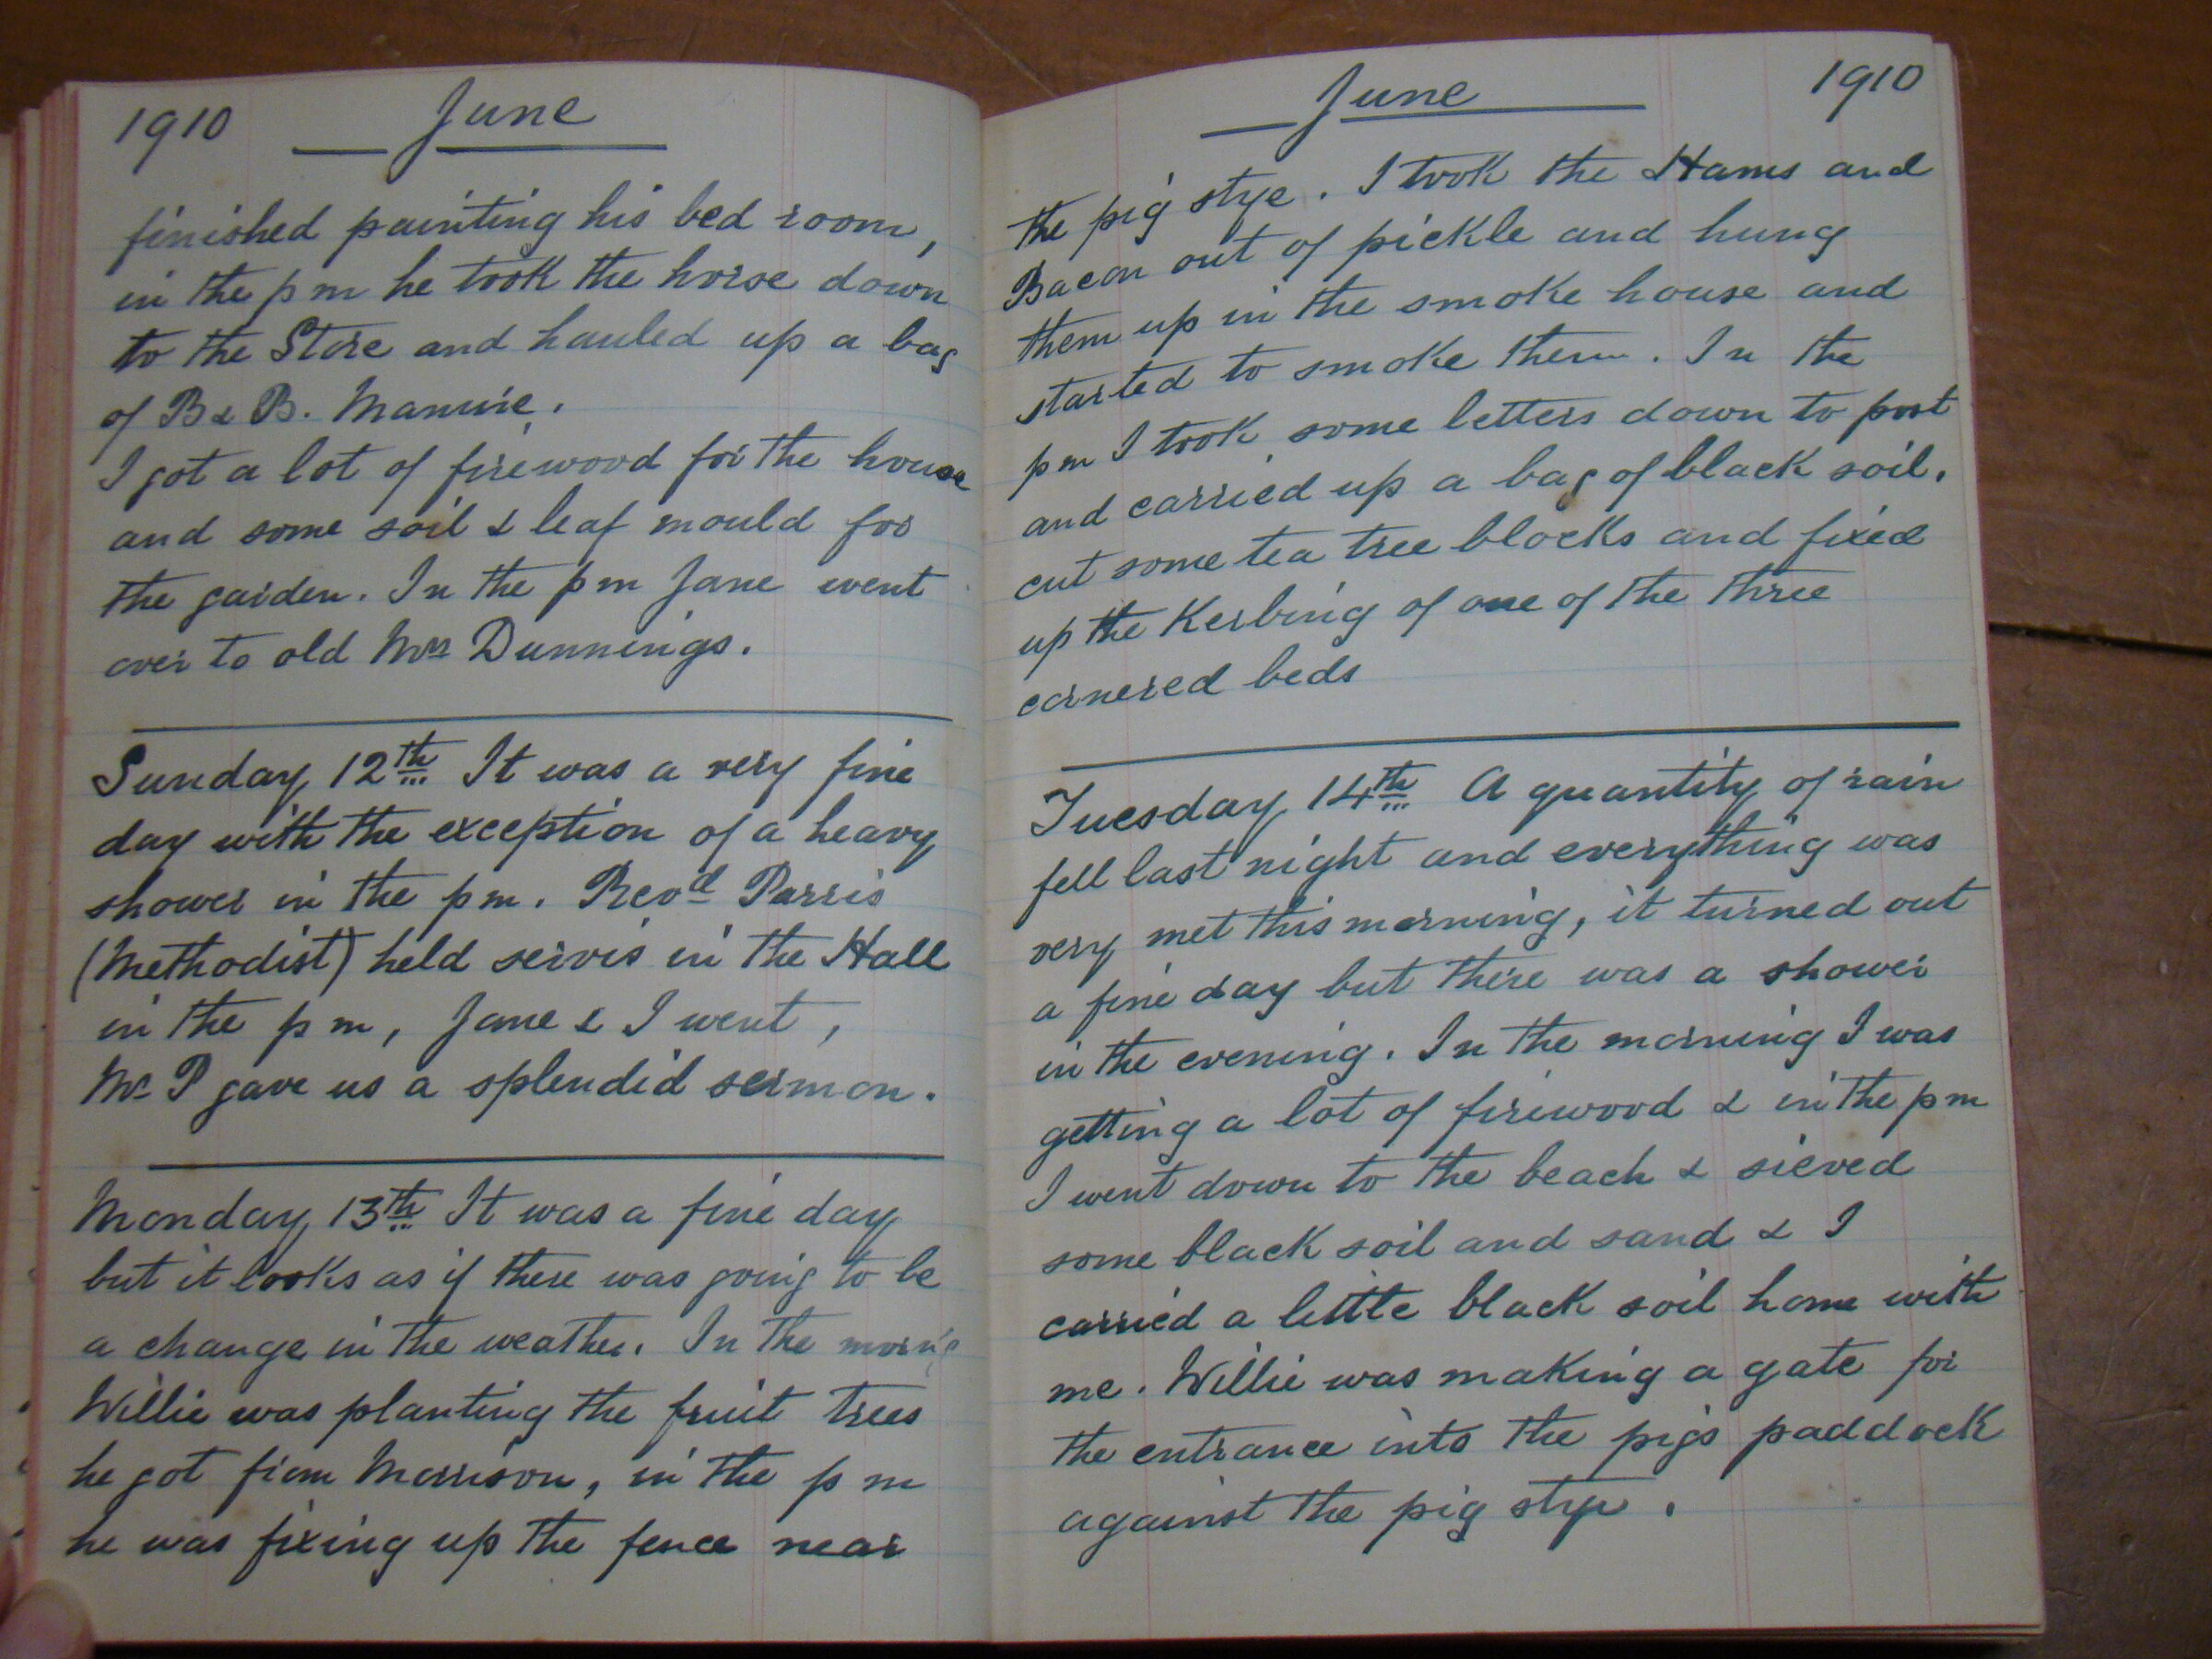 1910 June
finished painting his bed room,
in the pm he took the horse down
to the Store and hauled up a bag
of B & B. Manure.
I got a lot of firewood for the house
and some soil & leaf mould for
the garden. In the pm Jane went
over to old Mrs Dunnings.
Sunday 12th It was a very fine
day with the exception of a heavy
shower in the pm. Revd Parris
(Methodist) held servis in the Hall
in the pm, Jane & I went,
Mr P gave us a splendid sermon.
Monday 13th It was a fine day
but it looks as if there was going to be
a change in the weather. In the morng
Willie was planting the fruit trees
he got from Morrison, in the pm
he was fixing up the fence near
June 1910
the pig stye. I took the Hams and
Bacon out of pickle and hung
them up in the smoke house and
started to smoke them. In the
pm I took some letters down to post
and carried up a bag of black soil.
cut some tea tree blocks and fixed
up the Kerbing of one of the three
cornered beds
Tuesday 14th A quantity of rain
fell last night and everything was
very wet this morning, it turned out
a fine day but there was a shower
in the evening. In the morning I was
getting a lot of firewood & in the pm
I went down to the beach & sieved
some black soil and sand & I
carried a little black soil home with
me. Willie was making a gate for
the entrance into the pigs paddock
against the pig stye.